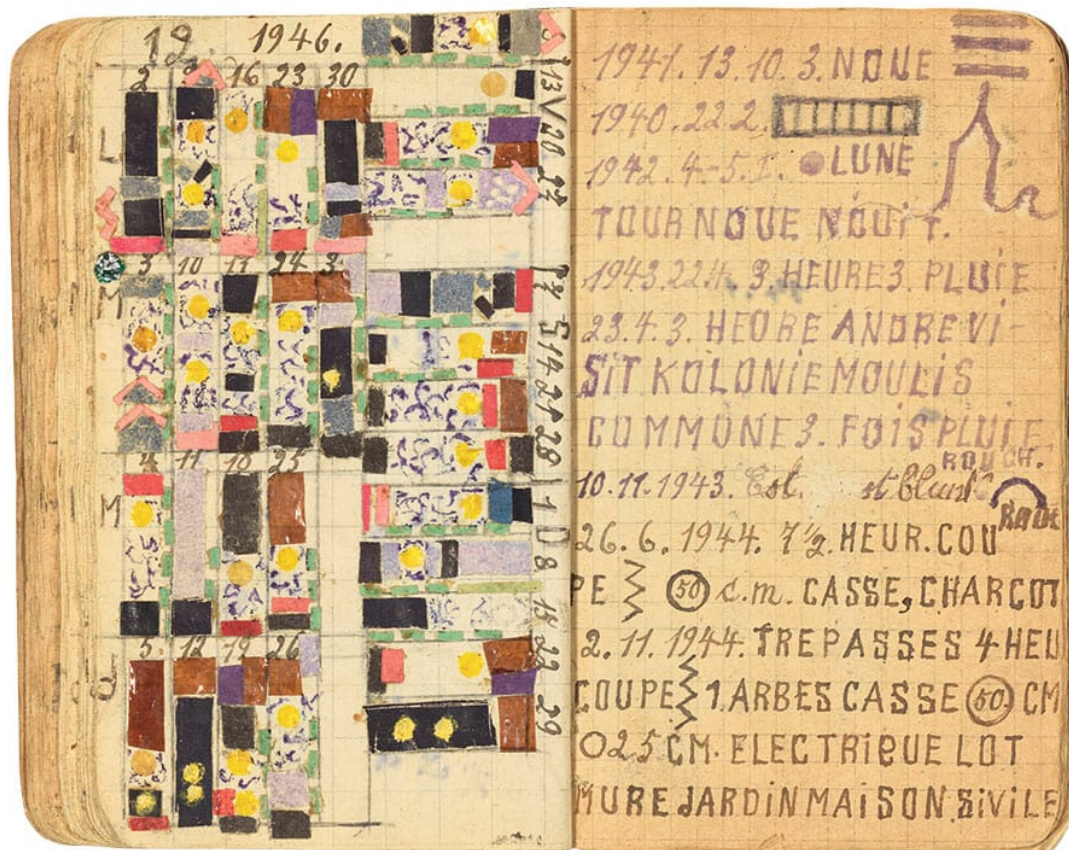 19. 1946.
2 9 16 23 30
L
3 10 17 24 3
M
4 11 18 25
M
5. 12 19 26
J
13 V 20 27
S 14 21 28
1 D 8 15 22 29
1941. 13. 10. 3. NOUE
1940. 22 2.
1942. 4-5. I. LUNE
TOUR NOUE NOUIT.
1943. 22.4. 3. HEURE 3. PLUIE
23. 4. 3. HEORE ANDRE VI-
SIT KOLONIE MOULIS
COMMONE 3. FOIS PLUIE
ROUCH.
10. 11. 1943. Est. st blunt
ROUE
26. 6. 1944. 7 ½. HEUR. COU
PE 50 c.m. CASSE, CHARCOT
2. 11. 1944. TREPASSES 4 HEU
COUPE 1. ARBES CASSE 50. CM
025 CM. ELECTRIQUE LOT
MURE JARDIN MAISON. SIVILE